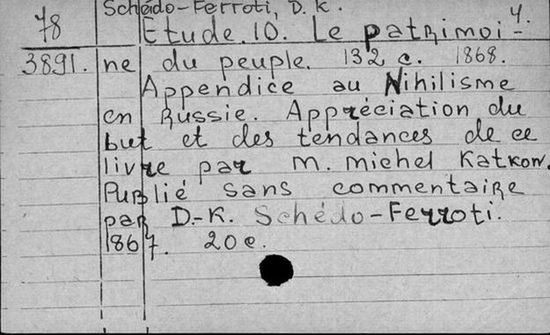 Schédo-Ferroti, D. K.
78 Etude. 10. Le patrimoi- 4.
3891. ne du peuple. 132 c. 1868.
Appendice au Nihilisme
en Russie. Appréciation du
but et des tendances de ce
livre par M. Michel Katkow.
Publié sans commentaire
par D.-K. Schédo-Ferroti.
1867. 20 c.